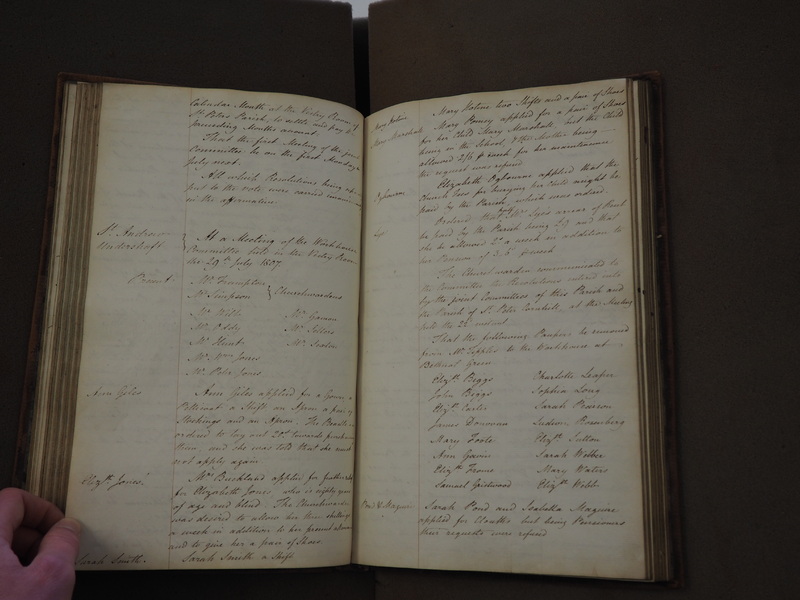 Calendar Month at the Vestry Room of
St. Peters Parish, to settle and pay the
preceeding Months account.
That the first Meeting of the joint
Committee be on the first Monday
July next.
All which Resolutions being
put to the vote were carried
in the affirmative
St. Andrew
Undershaft
At a Meeting of the Workhouse
Committee held in the Vestry Room
the 29th July 1807
Present
Mr. Frampton
Mr. Simpson
Churchwardens
Mr. Wills Mr. Garner
Mr. Oddy Mr. Sellers
Mr. Hunt
Mr. Wm. Jones
Mr. Peter Jones
Ann Giles
Ann Giles applied for a Gown a
Petticoat a Shift an Apron a pair of
Stockings and an Apron. The Beadle
ordered to lay out 20s. towards
them, and she was told that she must
not apply again
Elizth. Jones
Mrs. Buckland applied for
for Elizabeth Jones who is eighty years
of age and blind. The Churchwarden
was desired to allow her three shillings
a week in addition to her present allowance
and to give her a pair of Shoes.
Sarah Smith.
Sarah Smith a Shift
Mary Holine
Mary Holine two Shifts and a pair of Shoes
Mary Marchant
Mary Boney applied for a pair of Shoes
for her Child Mary Marchant, but the Child
being in the School, & the Mother being
allowed 2/6 p week for her maintenance
the request was refused
Ogbourne
Elizabeth Ogbourne applied that the
Church dues for burying her Child might be
paid by the Parish, which was ordered.
Ordered that half Mrs. Lyes arrears of Rent
be paid by the Parish being 29 and that
she be allowed 2s. a week in addition to
her Pension of 3.6 p week
The Churchwarden communicated to
the Committee the Resolutions entered into
by the joint Committees of this Parish and
the Parish of St. Peter Cornhill, at the Meeting
held the 22 instant.
That the following Paupers be removed
from Mr. Tipples to the Workhouse at
Bethnal Green
Elizth. Beggs Charlotte Leaper
John Beggs Sophia Long
Elizth. Carter Sarah Pearson
James Donovan Ludvon Rosenberg
Mary Foote Elizth. Sutton
Ann Gavin Sarah Webber
Elizth. Frome Mary Waters
Samuel Goistwood Elizth. Webb
Pond & Maguire
Sarah Pond and Isabella Maguire
applied for Cloaths but being Pensioners
their requests were refused